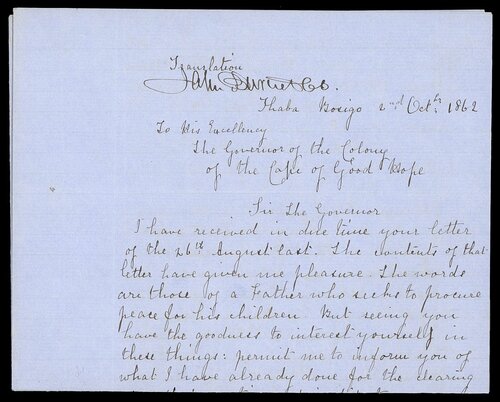 Translation
John Burnet CC.
Thaba Bosigo 2nd Octbr. 1862
To His Excellency
The Governor of the Colony
of the Cape of Good Hope
Sir The Governor
I have received in due time your letter
of the 26th August last. The contents of that
letter have given me pleasure. The words
are those of a Father who seeks to procure
peace for his children. But seeing you
have the goodness to interest yourself in
these things: permit me to inform you of
what I have already done for the clearing